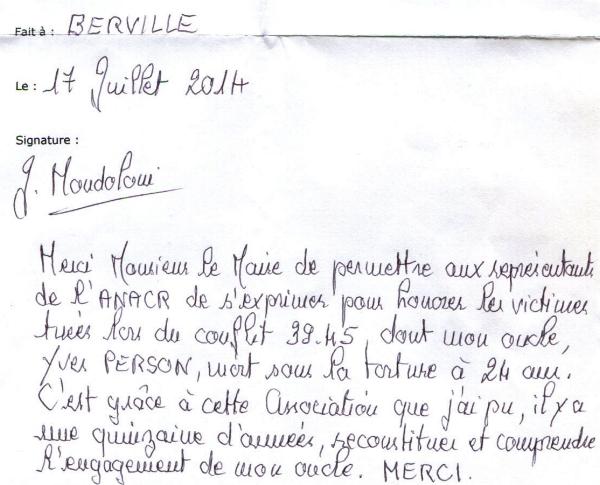 Fait à : BERVILLE
Le : 17 Juillet 2014
Signature :
J. Mondoloni
Merci Monsieur le Maire de permettre aux représentants
de l'ANACR de s'exprimer pour honorer les victimes
tuées lors du conflit 39.45, dont mon oncle,
Yves PERSON, mort sous la torture à 24 ans.
C'est grâce à cette Association que j'ai pu, il y a
une quinzaine d'années, reconstituer et comprendre
l'engagement de mon oncle. MERCI.